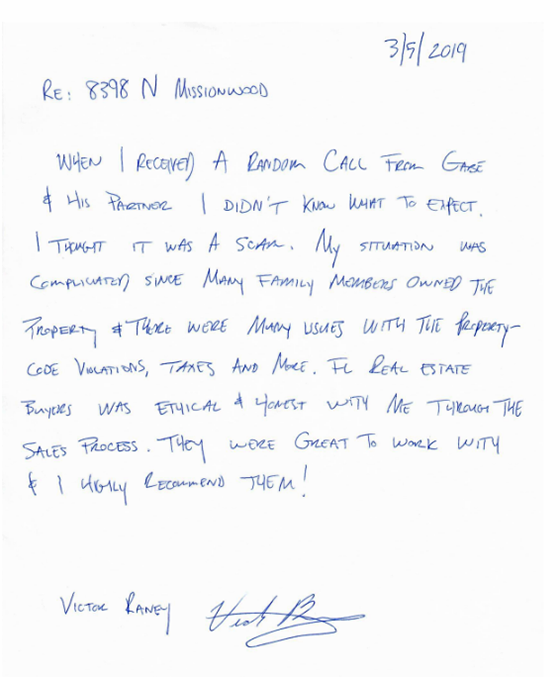 3/5/2019
RE: 8398 N MISSIONWOOD
WHEN I RECEIVED A RANDOM CALL FROM GABE
& HIS PARTNER I DIDN'T KNOW WHAT TO EXPECT.
I THOUGHT IT WAS A SCAM. MY SITUATION WAS
COMPLICATED SINCE MANY FAMILY MEMBERS OWNED THE
PROPERTY & THERE WERE MANY ISSUES WITH THE PROPERTY-
CODE VIOLATIONS, TAXES AND MORE. FL REAL ESTATE
BUYERS WAS ETHICAL & HONEST WITH ME THROUGH THE
SALES PROCESS. THEY WERE GREAT TO WORK WITH
& I HIGHLY RECOMMEND THEM!
VICTOR RANEY